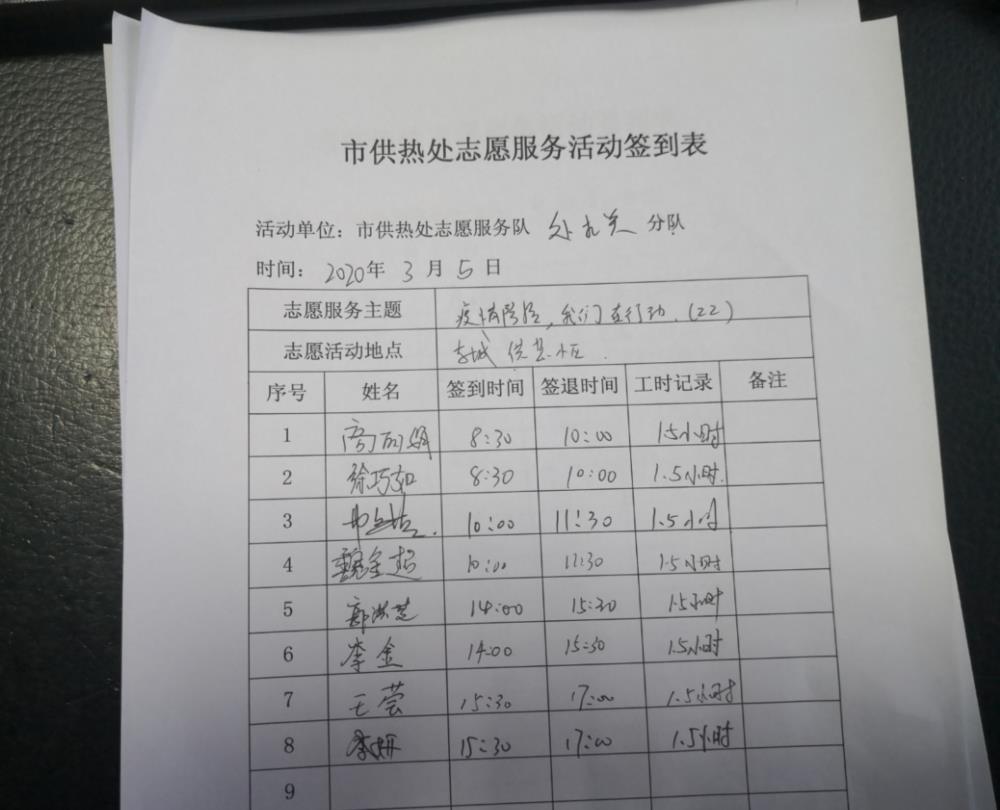 市供热处志愿服务活动签到表
活动单位：市供热处志愿服务队 处机关 分队
时间： 2020年 3 月 5 日
志愿服务主题 疫情防控，我们在行动.（22）
志愿活动地点 东城供热小区.
序号 姓名 签到时间 签退时间 工时记录 备注
1 8:30 10:00 1.5小时
2 徐巧如 8:30 10:00 1.5小时.
3 10:00 11:30 1.5小时
4 魏金超 10:00 11:30 1.5小时
5 郭洪芝 14:00 15:30 1.5小时
6 李金 14:00 15:30 1.5小时
7 王莹 15:30 17:00 1.5小时
8 李妍 15:30 17:00 1.5小时
9